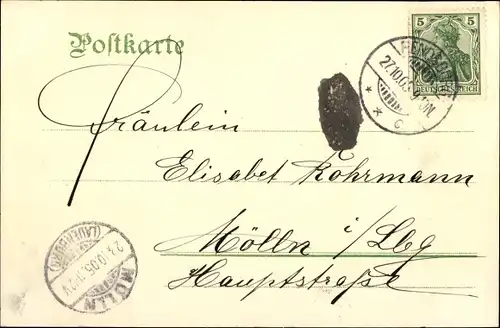 Postkarte
5 5
DEUTSCHES REICH
27.10.05
* * c
Fräulein
Elisabet Kohrmann
Mölln i/Lbg
Hauptstraße
MÖLLN
(LAUENBURG)